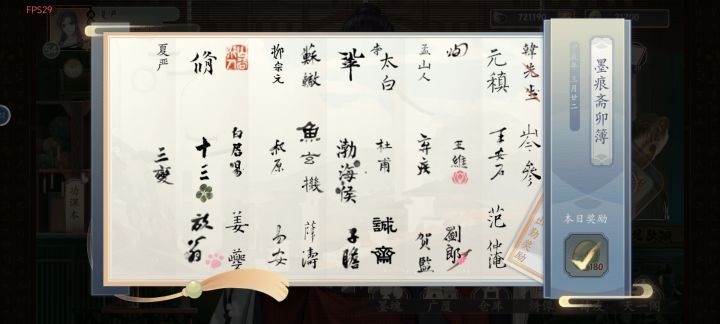 FPS29
墨痕斋卯簿
三月廿二
本日奖励
180
出勤奖励
韓先生
岑參
元稹
王安石
范仲淹
王維
劉郎
孟山人
辛疾
賀監
李太白
杜甫
誠齋
鞏
渤海侯
子瞻
蘇轍
魚玄機
薛濤
柳宗元
叔原
易安
白居易
姜夔
脩
十三
放翁
夏严
三變
功课本
墨魂
广厦
仓库
天一阁